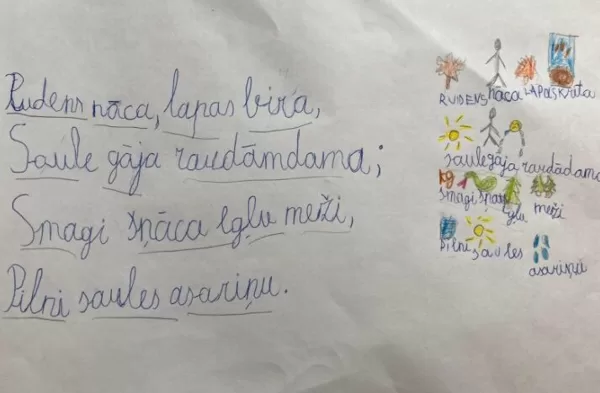 Rudens nāca, lapas bira,
Saule gāja raudāmdama;
Smagi šņāca egļu meži,
Pilni saules asariņu.
RUDENS nāca LAPAS Krita
saule gāja raudādama
smagi šņāca egļu meži
Pilni saules asariņu